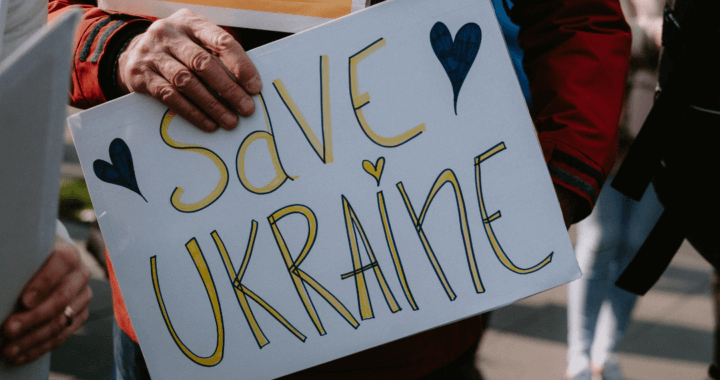 SAVE
UKRAINE